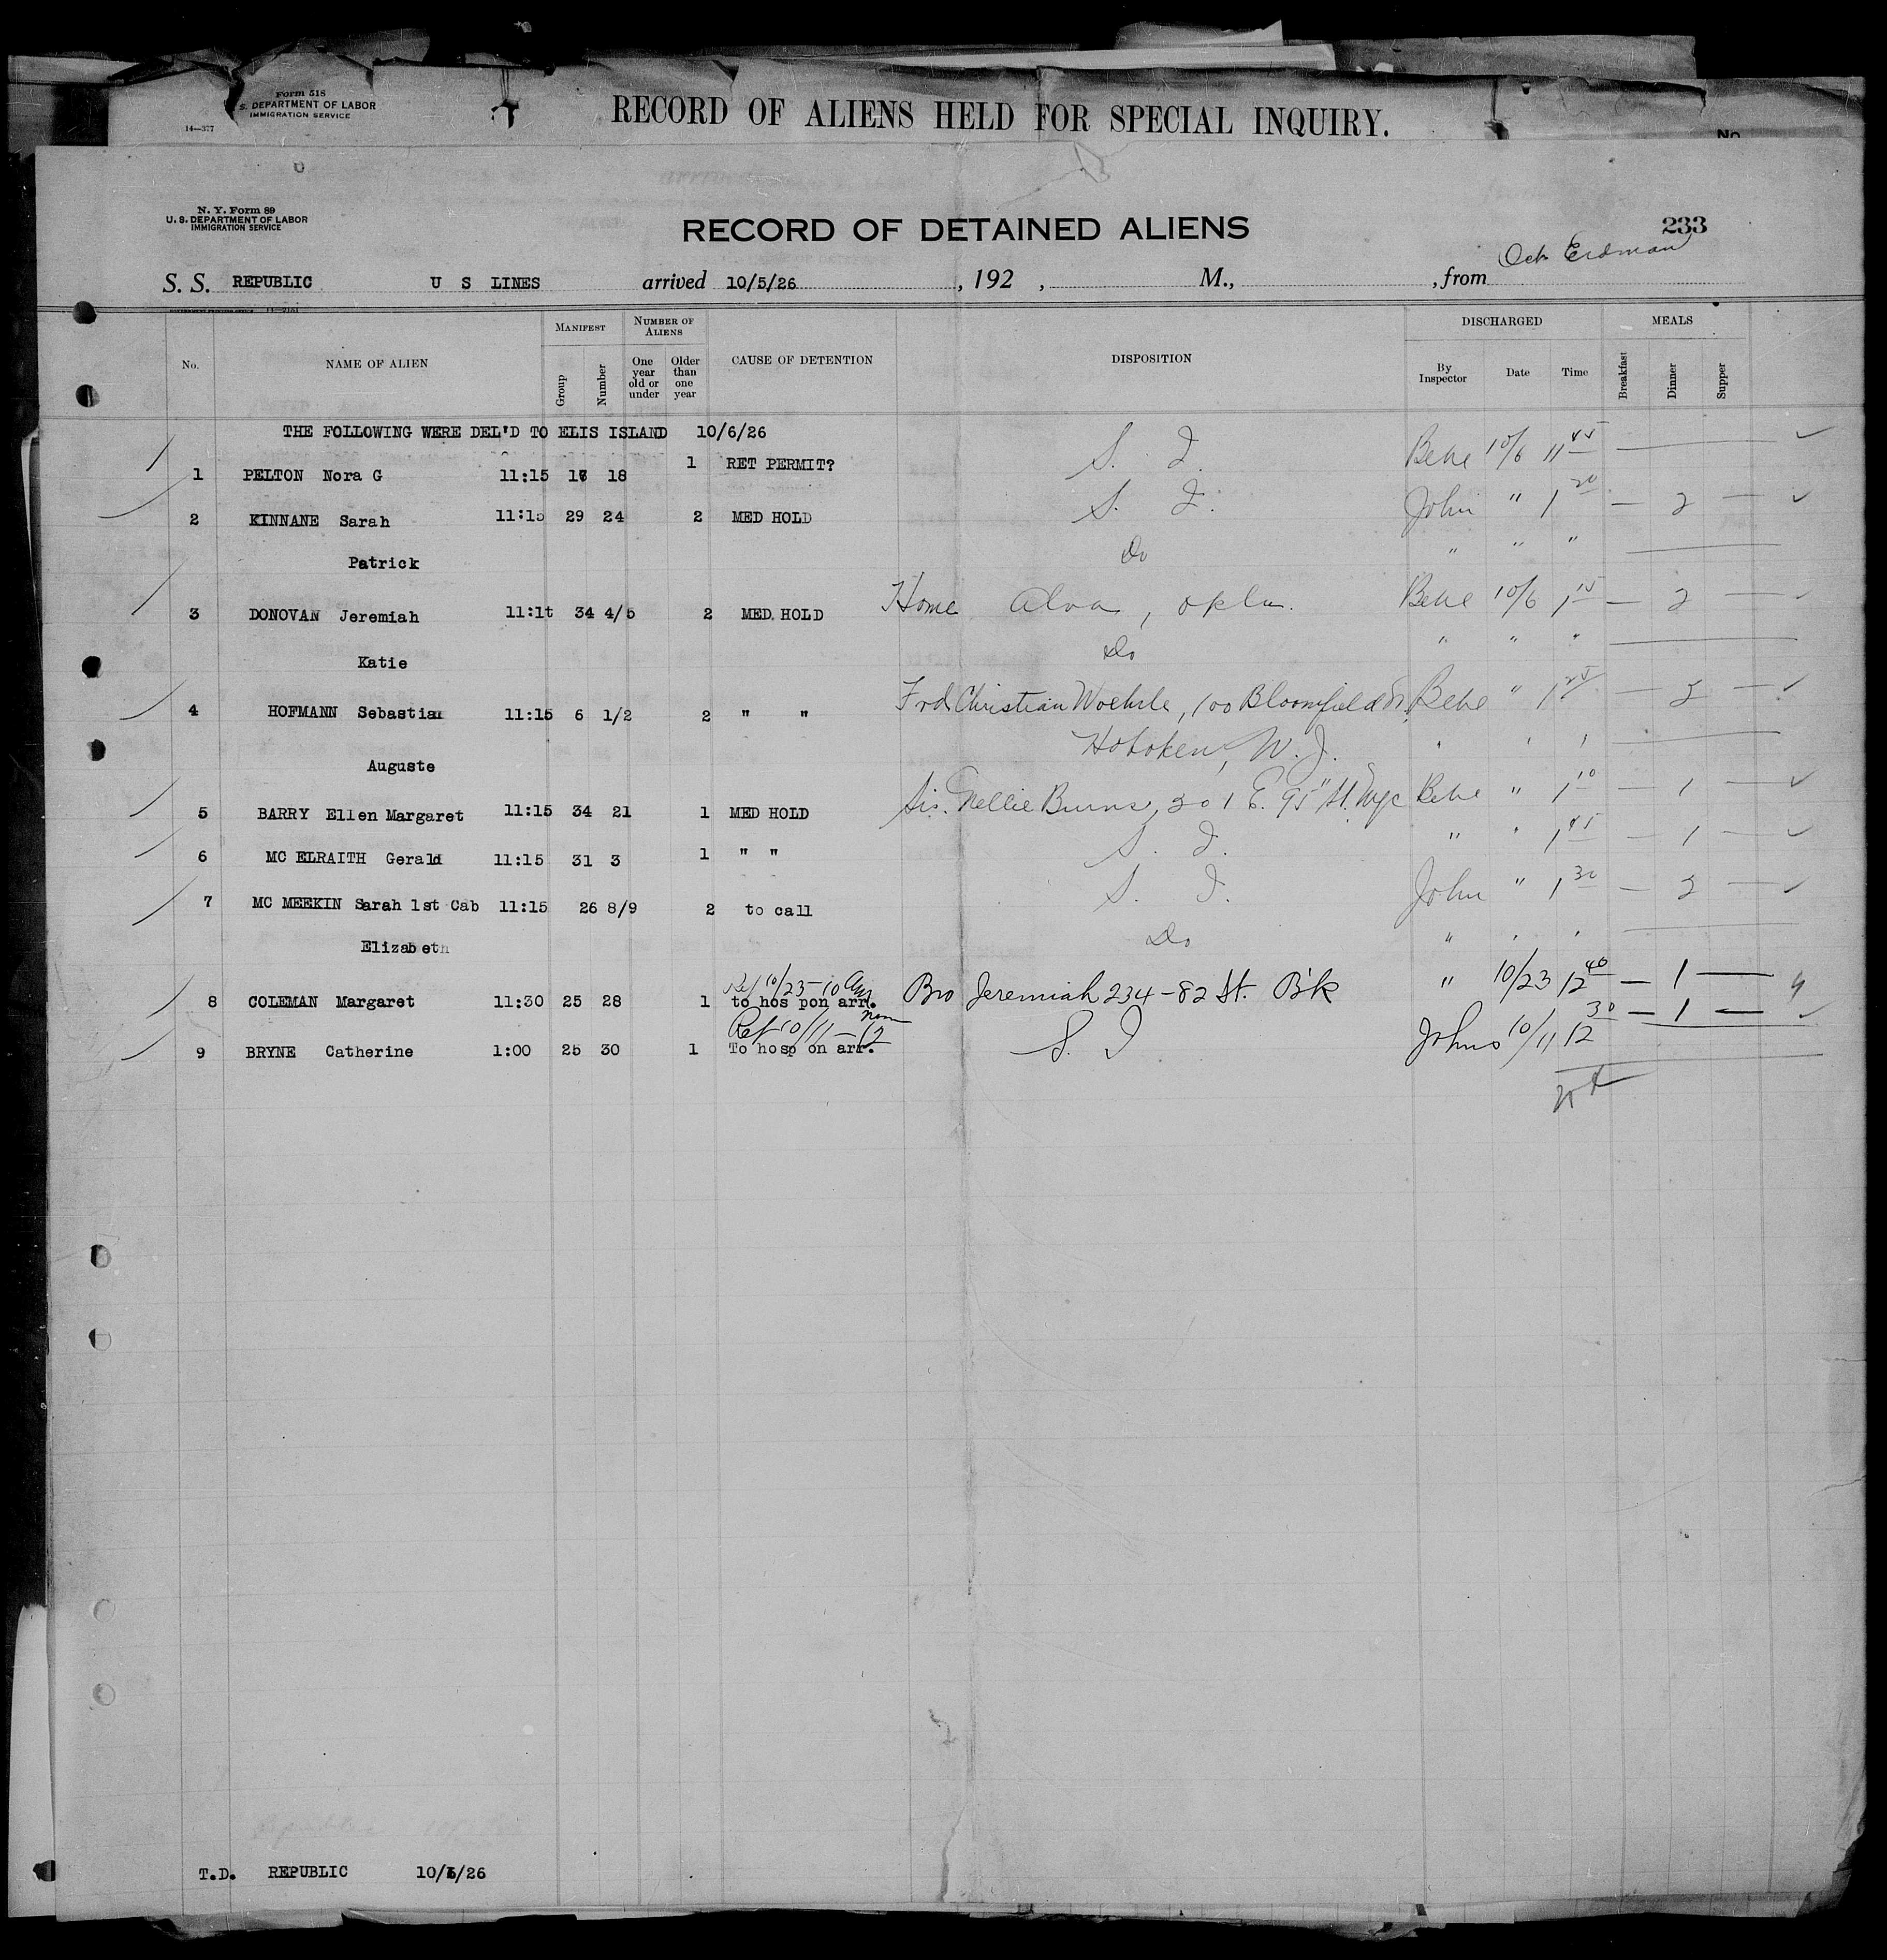 Form 518
S. DEPARTMENT OF LABOR
IMMIGRATION SERVICE
14—377
RECORD OF ALIENS HELD FOR SPECIAL INQUIRY.
No
N. Y. Form 89
U. S. DEPARTMENT OF LABOR
IMMIGRATION SERVICE
RECORD OF DETAINED ALIENS
233
S. S. REPUBLIC U S LINES arrived 10/5/26 , 192 , M., , from Erdman
No. NAME OF ALIEN MANIFEST Group Number NUMBER OF ALIENS One year old or under Older than one year CAUSE OF DETENTION DISPOSITION DISCHARGED By Inspector Date Time MEALS Breakfast Dinner Supper
THE FOLLOWING WERE DEL'D TO ELIS ISLAND 10/6/26
1 PELTON Nora G 11:15 18 1 RET PERMIT? S. I. Behe 10/6 11 45 — ✓
2 KINNANE Sarah 11:15 29 24 2 MED HOLD S. I. John " 1 20 — 2 — ✓
Patrick Do " " "
3 DONOVAN Jeremiah 11:1t 34 4/5 2 MED HOLD Home Alva, Okla. Behe 10/6 1 15 — 2 — ✓
Katie Do " " "
4 HOFMANN Sebastian 11:15 6 1/2 2 " " Frd Christian Woehrle, 100 Bloomfield St. Behe " 1 25 — 2 — ✓
Auguste Hoboken, N. J. " " "
5 BARRY Ellen Margaret 11:15 34 21 1 MED HOLD Sis. Nellie Burns, 301 E. 95" St. Nyc Behe " 1 10 — 1 — ✓
6 MC ELRAITH Gerald 11:15 31 3 1 " " S. I. " " 1 45 — 1 — ✓
7 MC MEEKIN Sarah 1st Cab 11:15 26 8/9 2 to call S. I. John " 1 30 — 2 — ✓
Elizabeth Do " " "
Rel 10/23 - 10 Am
8 COLEMAN Margaret 11:30 25 28 1 to hos pon arr. Bro Jeremiah 234 - 82 St. B'k " 10/23 12 40 — 1 —
Ret 10/11 - 12 noon
9 BRYNE Catherine 1:00 25 30 1 To hosp on arr. S. I John 10/11 12 30 — 1 — ✓
T.D. REPUBLIC 10/5/26